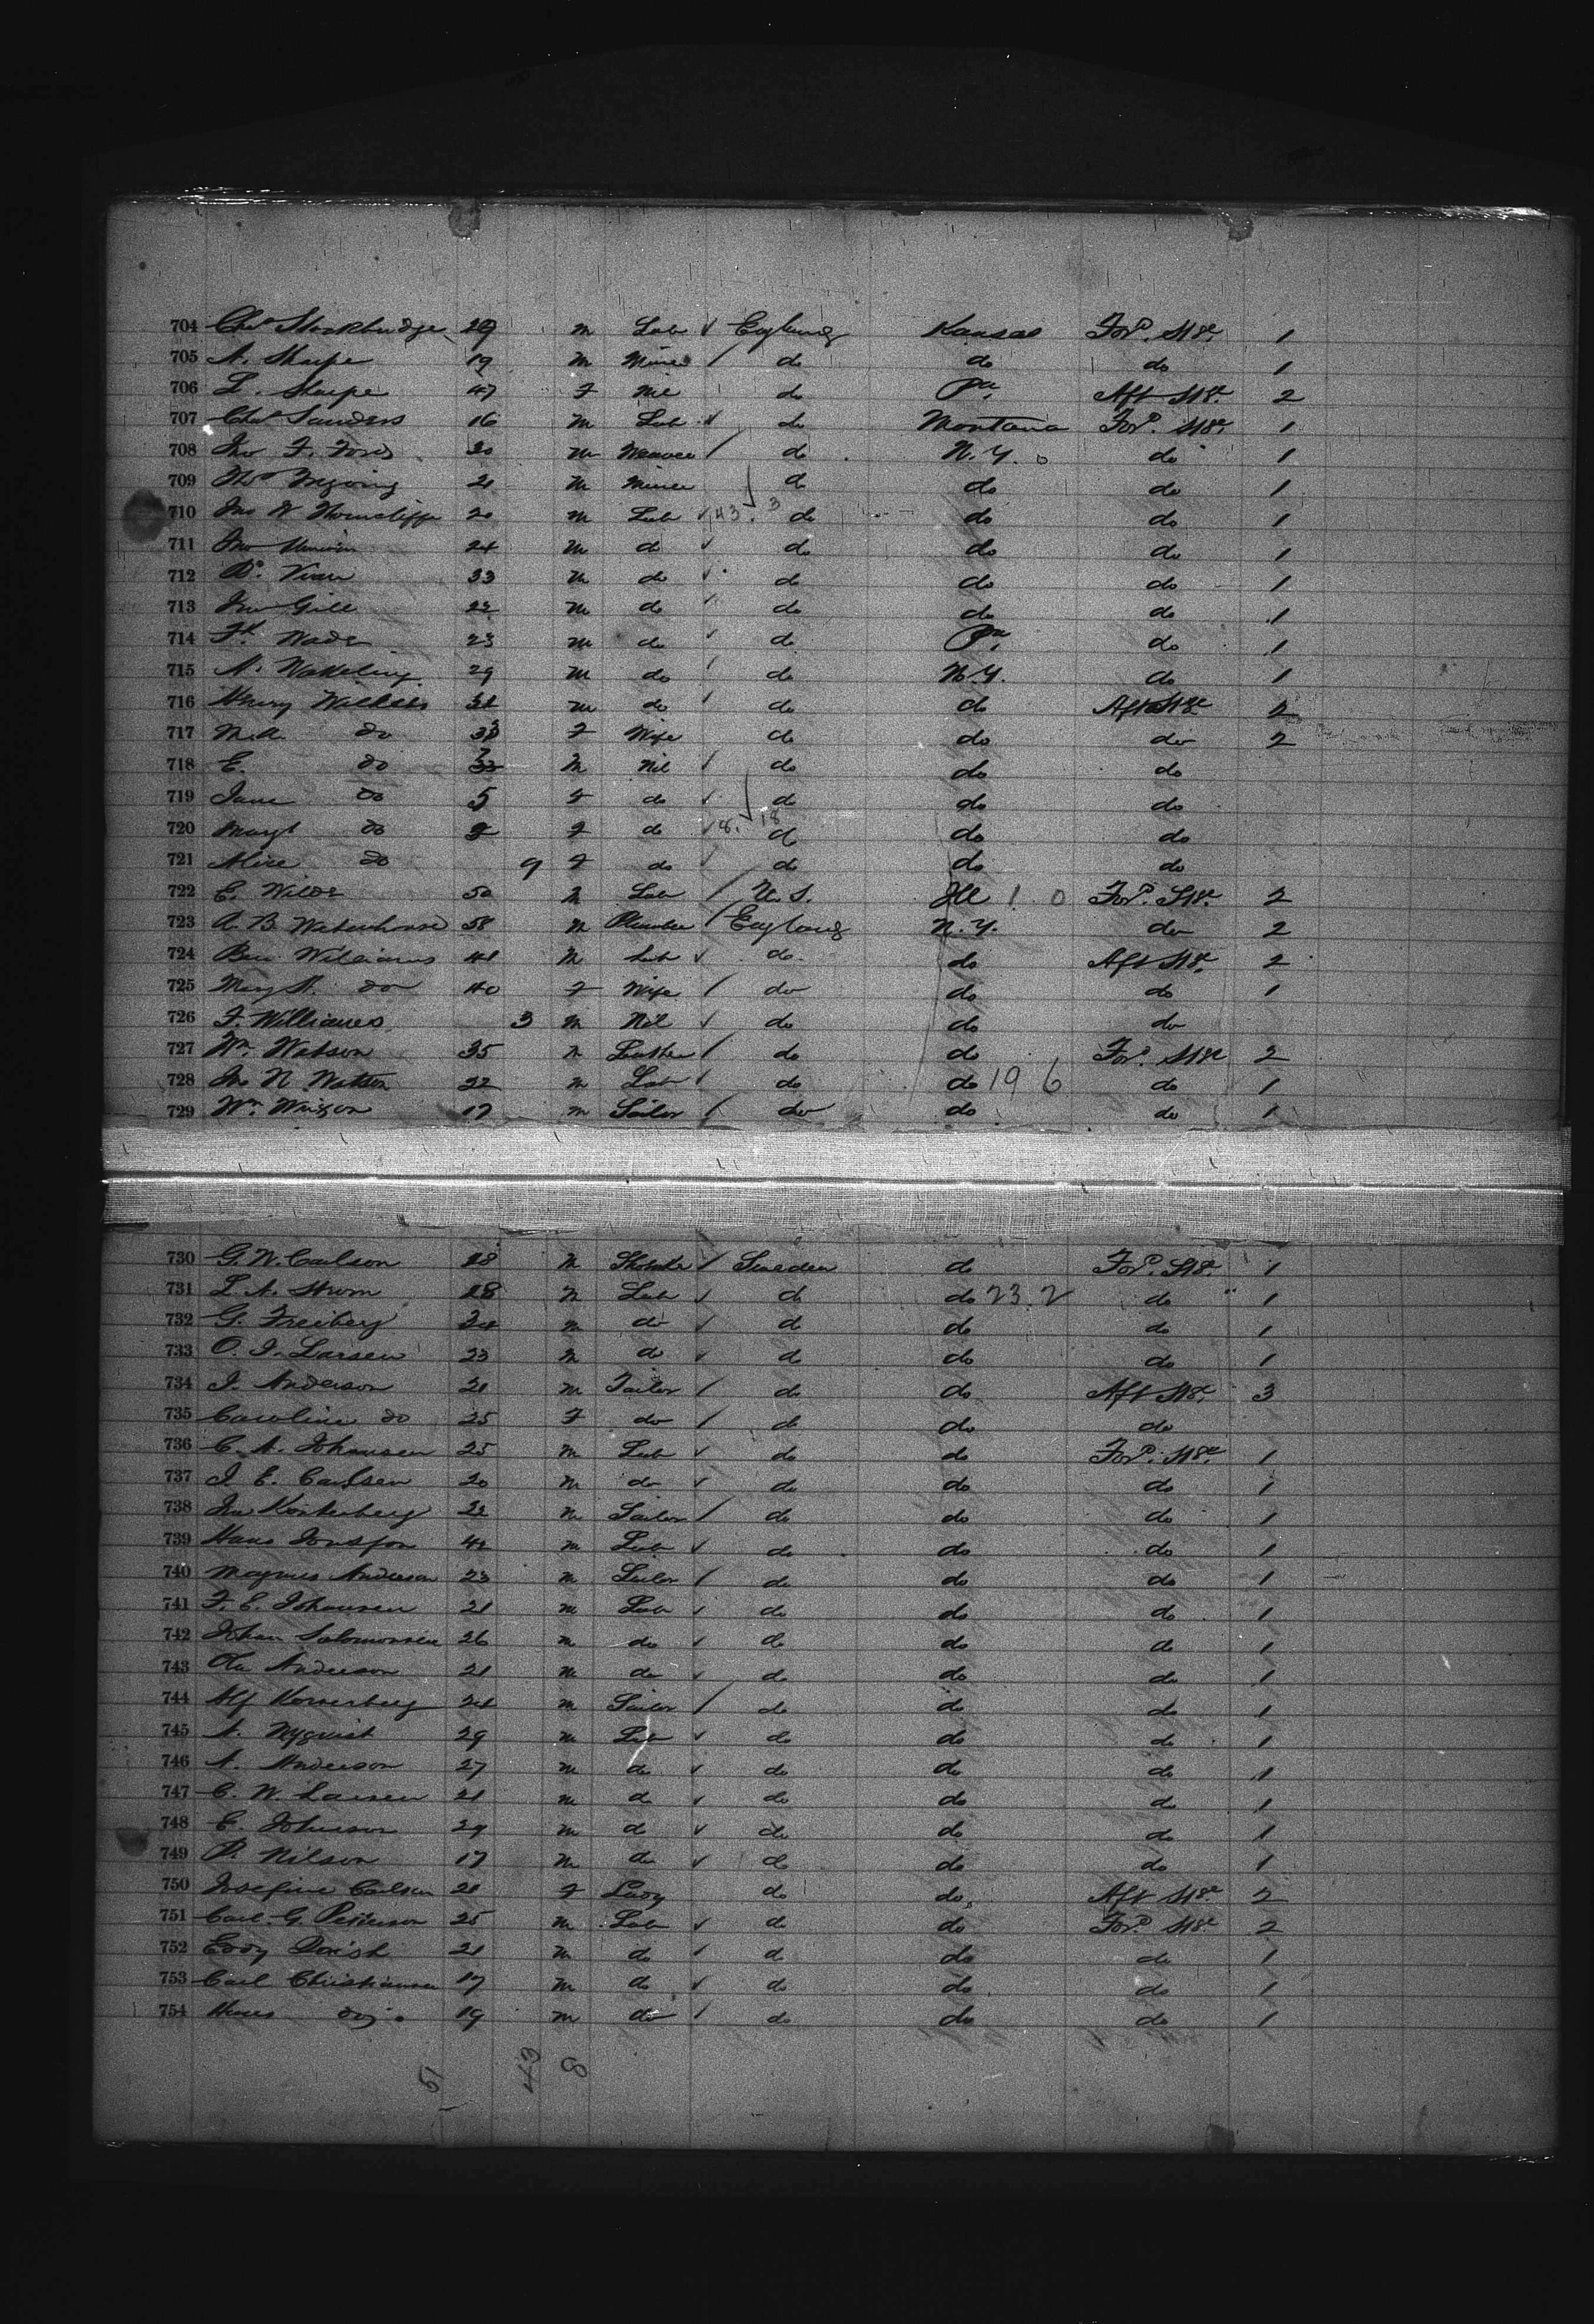 704 Chas Stockbridge 29 m Lab England Kansas For'd. St'ge. 1
705 A. Sharpe 19 m Miner do do do 1
706 L. Sharpe 47 F Nil do Pa. Aft St'ge. 2
707 Chas Saunders 16 m Lab do Montana For'd. St'ge. 1
708 Jno F. Ford 20 m Weaver do N.Y. do 1
709 Thos 21 m Miner do do do 1
710 Jno W 20 m Lab 43. 3 do do do 1
711 Jno 24 m do do do do 1
712 33 m do do do do 1
713 Jno Gill 22 m do do do do 1
714 Fk. Wade 23 m do do Pa. do 1
715 A. Wakeling 29 m do do N.Y. do 1
716 Henry 31 m do do do Aft St'ge 2
717 M.A. do F Wife do do do 2
718 E. do m Nil do do do
719 Jane do 5 F do do do do
720 Margt do 2 F do 8. 18 do do do
721 Alice do 9 F do do do do
722 E. Wilde 50 m Lab U.S. Ill 1 0 For'd. St'ge. 2
723 A. B. Waterhouse 58 m Plumber England N.Y. do 2
724 Ben Williams 41 m Lab do do Aft St'ge. 2
725 Mary A. do 40 F Wife do do do 1
726 F. Williams 3 m Nil do do do
727 Wm. Watson 35 m do do For'd. St'ge 2
728 Jno N. Watson 22 m Lab do do 19 6 do 1
729 Wm. 17 m Sailor do do do 1
730 G. W. Carlson 28 m Sweden do For'd. St'ge. 1
731 L. A. Strom 28 m Lab do do 23. 2 do 1
732 G. Freiberg 24 m do do do do 1
733 O. J. Larsen 23 m do do do do 1
734 J. Anderson 21 m Tailor do do Aft St'ge. 3
735 Caroline do 25 F do do do do
736 C. A. Johansen 25 m Lab do do For'd. St'ge. 1
737 J. E. Carlsen 20 m do do do do 1
738 Jno 22 m Sailor do do do 1
739 Hans Jonsson 42 m Lab do do do 1
740 Magnus Anderson 23 m Sailor do do do 1
741 F. E. Johansen 21 m Lab do do do 1
742 Johan Salomonsen 26 m do do do do 1
743 Ola Anderson 21 m do do do do 1
744 Alf 24 m Sailor do do do 1
745 A. Nyquist 29 m Lab do do do 1
746 A. Anderson 27 m do do do do 1
747 C. W. Larsen 21 m do do do do 1
748 E. Johnson 29 m do do do do 1
749 P. Nilson 17 m do do do do 1
750 Josefine Carlson 21 F Lady do do Aft St'ge. 2
751 Carl. G. Petterson 25 m Lab do do For'd. St'ge. 2
752 Eddy 21 m do do do do 1
753 Carl Christiansen 17 m do do do do 1
754 Hans do 19 m do do do do 1
51 43 8